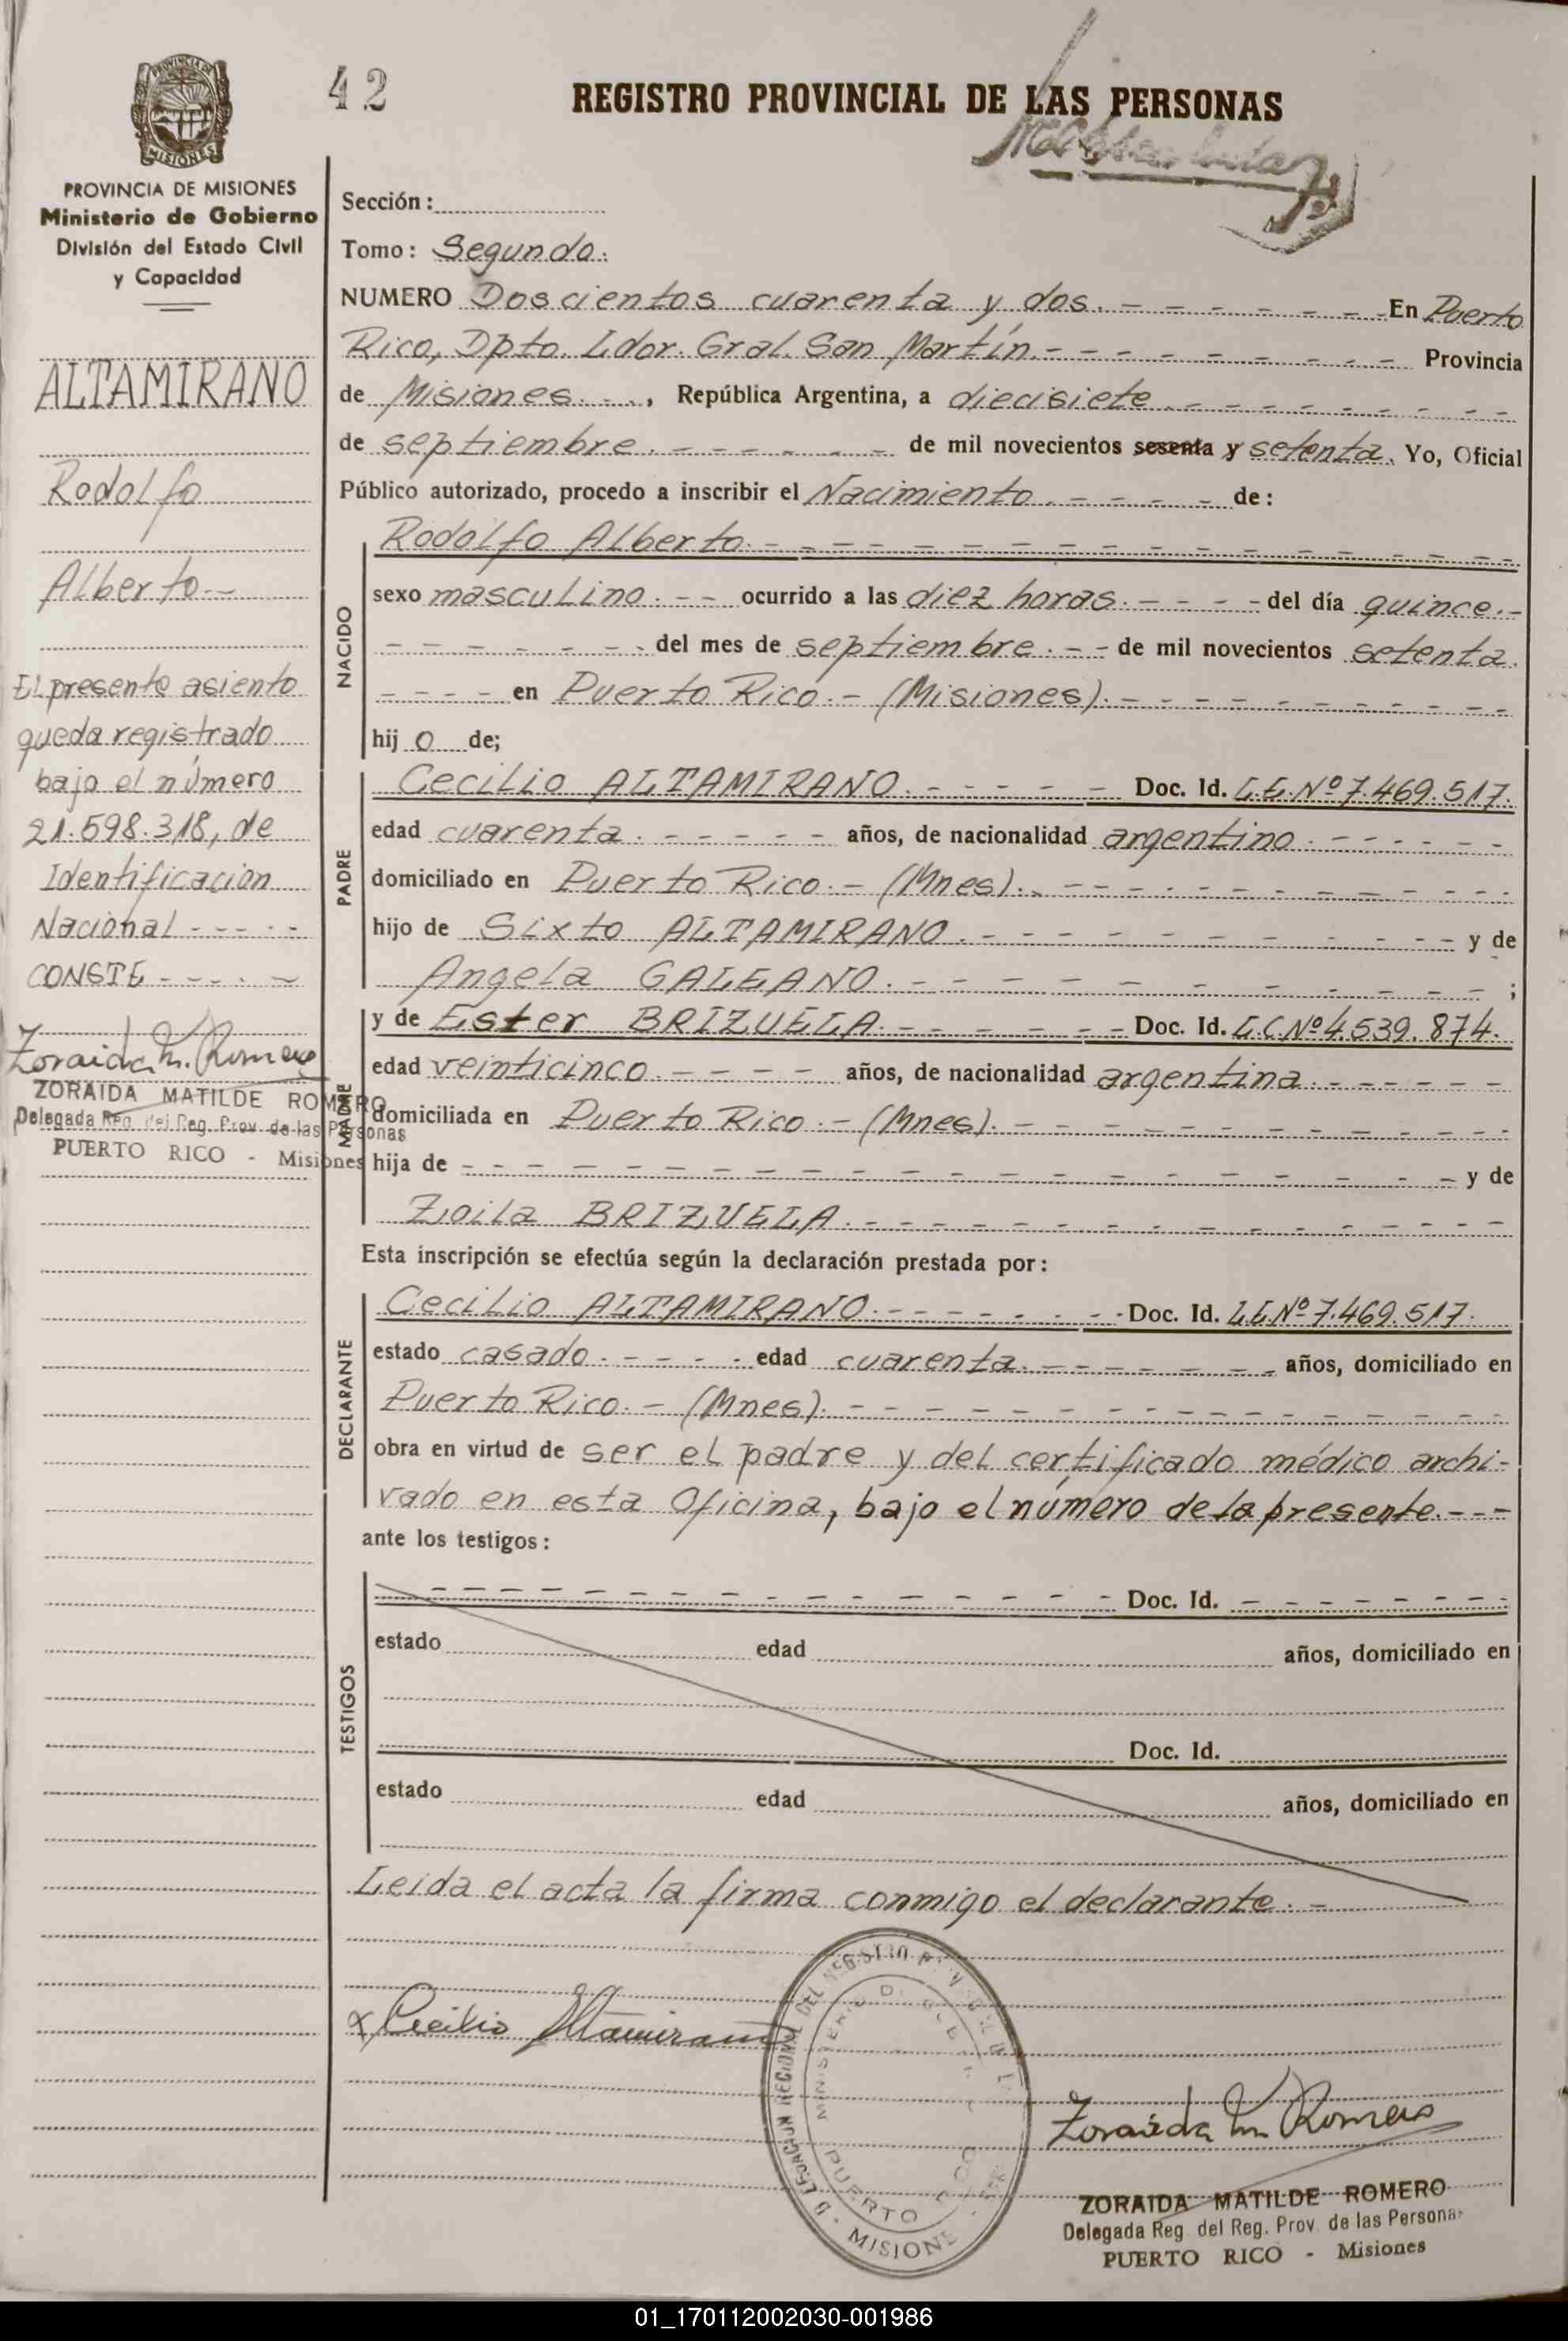 42
REGISTRO PROVINCIAL DE LAS PERSONAS
PROVINCIA DE MISIONES
Ministerio de Gobierno
División del Estado Civil
y Capacidad
ALTAMIRANO
Rodolfo
Alberto.--
El presente asiento
queda registrado
bajo el número
21.598.318, de
Identificación
Nacional - - - - -
CONSTE - - - . -
Zoraida M. Romero
ZORAIDA MATILDE ROMERO
Delegada Reg. del Reg. Prov. de las Personas
PUERTO RICO - Misiones
Sección:
Tomo: Segundo.
NUMERO Doscientos cuarenta y dos. - - - - - - - En Puerto
Rico, Dpto. Ldor. Gral. San Martín. - - - - - - - - - Provincia
de Misiones. - ., República Argentina, a diecisiete. - - - - - - - - -
de septiembre. - - - - - - de mil novecientos sesenta y setenta. Yo, Oficial
Público autorizado, procedo a inscribir el Nacimiento. - - - - de:
NACIDO
Rodolfo Alberto. - - - - - - - - - - - - - - - -
sexo masculino. - - ocurrido a las diez horas. - - - - del día quince. -
- - - - - - - del mes de septiembre. - - de mil novecientos setenta.
- - - - en Puerto Rico. - (Misiones). - - - - - - - - - -
hij o de;
PADRE
Cecilio ALTAMIRANO. - - - - - Doc. Id. L.E. Nº 7.469.517.
edad cuarenta. - - - - - años, de nacionalidad argentino. - - - - -
domiciliado en Puerto Rico. - (Mnes). - - - - - - - - - - -
hijo de Sixto ALTAMIRANO. - - - - - - - - - - y de
Angela GALEANO. - - - - - - - - - - - ;
MADRE
y de Ester BRIZUELA. - - - - - Doc. Id. L.C. Nº 4.539.874.
edad veinticinco. - - - - años, de nacionalidad argentina. - - - - -
domiciliada en Puerto Rico. - (Mnes). - - - - - - - - - - -
hija de - - - - - - - - - - - - - - - - - y de
Zoila BRIZUELA. - - - - - - - - - - - -
Esta inscripción se efectúa según la declaración prestada por:
DECLARANTE
Cecilio ALTAMIRANO. - - - - - - - Doc. Id. L.E. Nº 7.469.517.
estado casado. - - - - edad cuarenta. - - - - - - años, domiciliado en
Puerto Rico. - (Mnes). - - - - - - - - - - - - - -
obra en virtud de ser el padre y del certificado médico archi-
vado en esta Oficina, bajo el número de la presente. - - -
ante los testigos:
TESTIGOS
- - - - - - - - - - - - - - - Doc. Id. - - - - - - -
estado edad años, domiciliado en
Doc. Id.
estado edad años, domiciliado en
Leida el acta la firma conmigo el declarante. -
x Cecilio Altamirano
MISIONES
PUERTO RICO
Zoraida M. Romero
ZORAIDA MATILDE ROMERO
Delegada Reg. del Reg. Prov. de las Personas
PUERTO RICO - Misiones
01_170112002030-001986